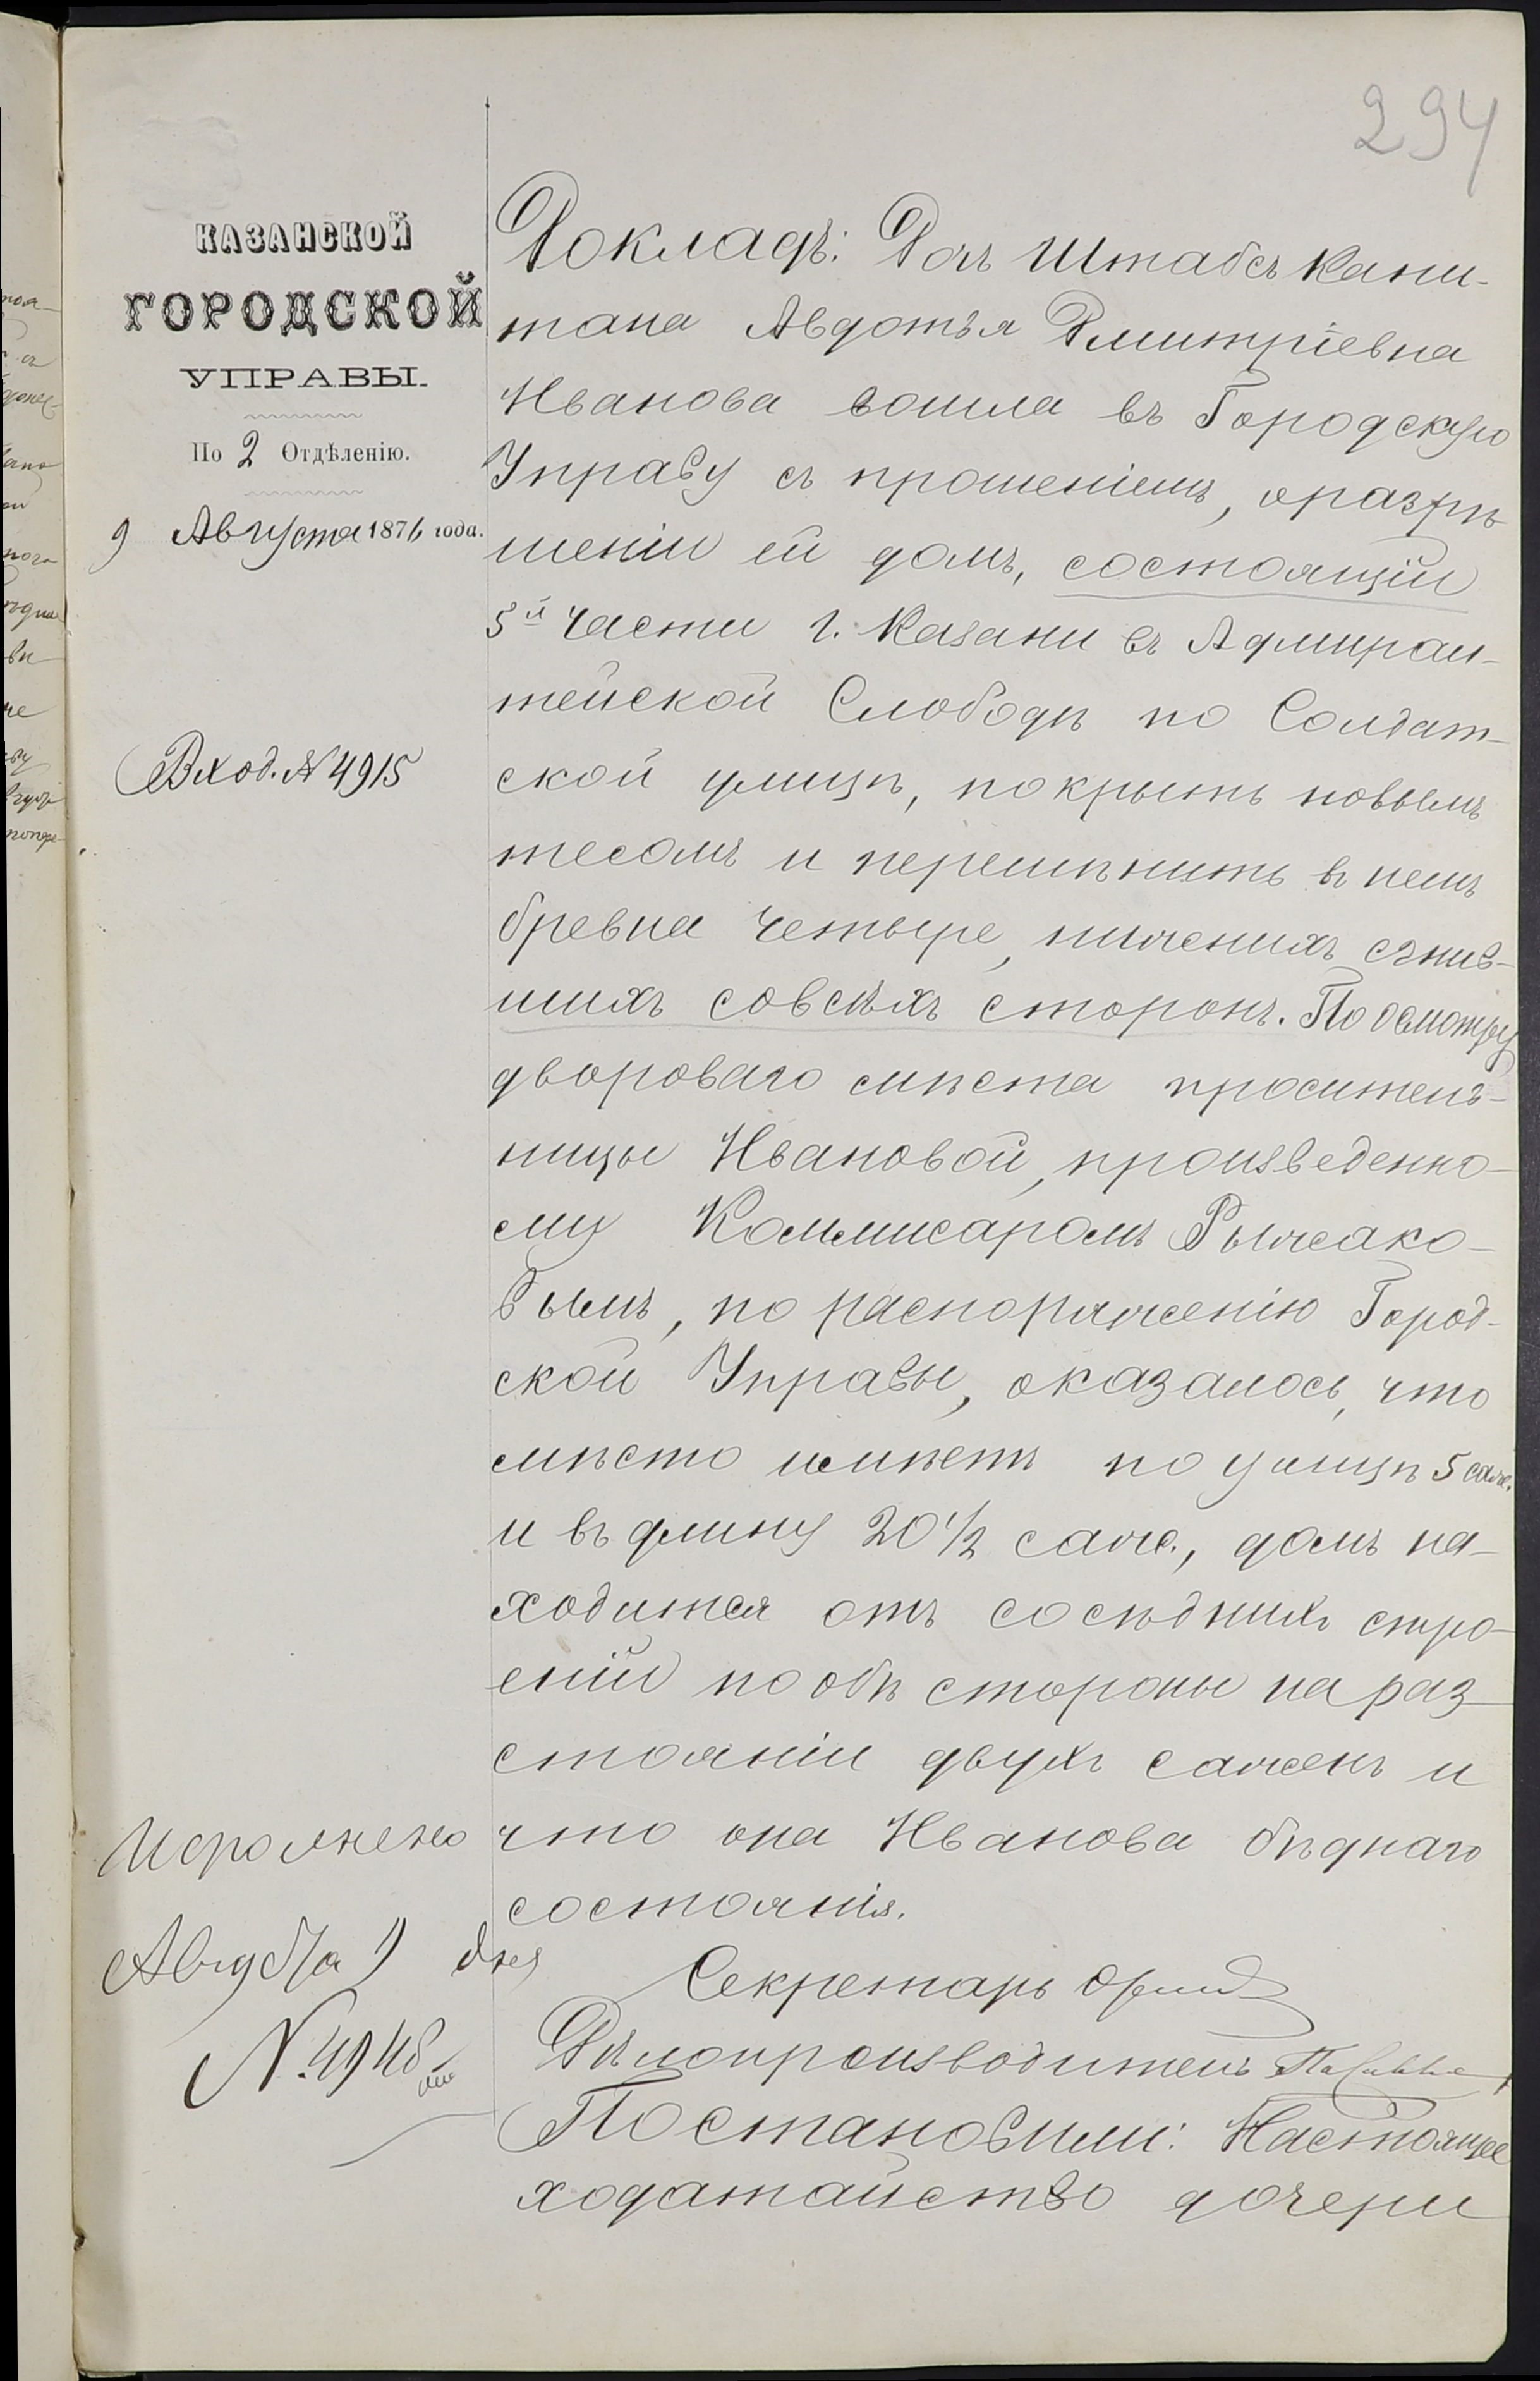 294
КАЗАНСКОЙ
ГОРОДСКОЙ
УПРАВЫ.
По 2 Отдѣленію.
9 Августа 1876 года.
Вход. № 4915
Исполнено
Августа 9 дня
№ 4948
Докладъ: Дочь Штабсъ Капи-
тана Авдотья Дмитріевна
Иванова вошла въ Городскую
Управу съ прошеніемъ, о разрѣ
шеніи ей домъ, состоящій
5й части г. Казани въ Адмирал-
тейской Слободѣ по Солдат-
ской улицѣ, покрыть новымъ
тесомъ и перемѣнить въ немъ
бревна четыре, нижнихъ сгнив-
шихъ совсѣхъ сторонъ. По осмотру
двороваго мѣста проситель-
ницы Ивановой, произведенно-
му Коммисаромъ Рыжако-
вымъ, по распоряженію Город-
ской Управы, оказалось, что
мѣсто имѣетъ по улицѣ 5 саж.
и въ длину 20 1/2 саж., домъ на-
ходится отъ сосѣднихъ стро-
еній по обѣ стороны на раз
стояніи двухъ сажень и
что она Иванова бѣднаго
состоянія.
Секретарь
Дѣлопроизводитель
Постановили: Настоящее
ходатайство дочери